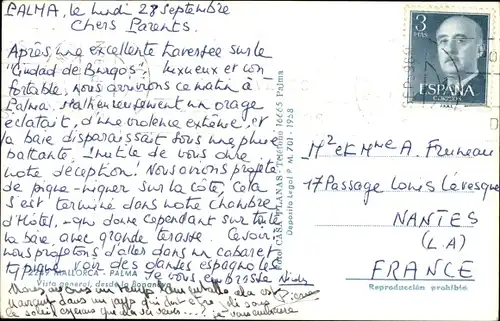 PALMA, le lundi 28 Septembre
Chers Parents.
Après une excellente traversée sur le
"Ciudad de Burgos", luxueux et con-
fortable, nous arrivions ce matin à
Palma. Malheureusement un orage
éclatait, d'une violence extrême, et
la baie disparaissait sous une pluie
battante. Inutile de vous dire
notre déception! Nous avions projeté
de pique-niquer sur la côte, Cela
s'est terminé dans notre chambre
d'Hôtel, - qui donne cependant sur toute
la baie, avec grande terasse. Ce soir
nous projetons d'aller dans un cabaret
typique voir des danses espagnoles
Je vous embrasse
MALLORCA - PALMA
Vista general, desde la Bonanova
Nous avons un temps
dans un pays qui doit être
le soleil je vous embrasse
CASA PLANAS - Teléfono 16665 Palma
Deposito Legal P M. 701 - 1958
3
PTAS
ESPAÑA
CORREOS
Mr et Mme A. Fruneau
17 Passage Louis Lévesque
NANTES
(L.A)
FRANCE
Reproducción prohibida